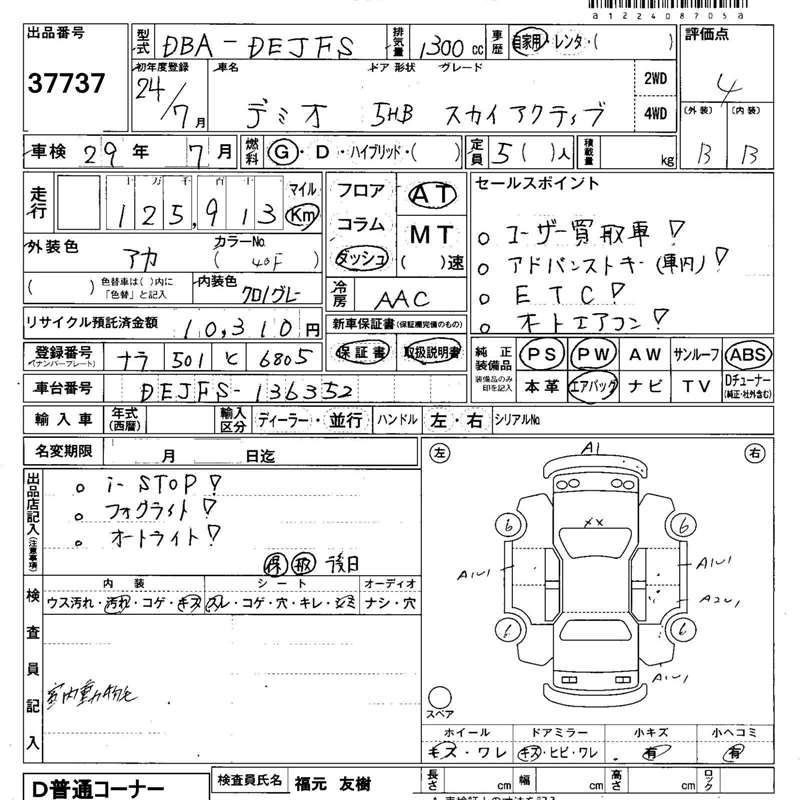 a122408705a
出品番号 37737
型式 DBA-DEJFS 排気量 1300 cc 車歴 自家用・レンタ・( )
評価点 4
初年度登録 24/7月 車名 デミオ ドア 形状 5HB グレード スカイアクティブ 2WD 4WD
(外装) B (内装) B
車検 29年 7月 燃料 G・D・ハイブリッド・( ) 定員 5( )人 積載量 kg
走行 十万千百十 125,913 マイル Km
フロア コラム ダッシュ AT MT ( )速
セールスポイント
○ ユーザー買取車!
○ アドバンストキー(車内)!
○ ETC!
○ オートエアコン!
外装色 アカ カラーNo. (40F)
( ) 色替車は( )内に「色替」と記入 内装色 クロ/グレー
冷房 AAC
リサイクル預託済金額 10,310円
新車保証書(保証欄完備のもの)
保証書 取扱説明書
登録番号 (ナンバープレート) ナラ 501 と 6805
車台番号 DEJFS-136352
純正装備品 装備品のみ印を記入 PS PW AW サンルーフ ABS
本革 エアバッグ ナビ TV Dチューナー (純正・社外含む)
輸入車 年式(西暦) 輸入区分 ディーラー・並行 ハンドル 左・右 シリアルNo.
名変期限 月 日迄
出品店記入(注意事項)
○ i-STOP!
○ フォグライト!
○ オートライト!
保 取 後日
左 右
A1
××
6 6
A1U1 A1U1
A2U1
6 6
A1U1
スペア
検査員記入
内装 シート オーディオ
ウス汚れ・汚れ・コゲ・キズ スレ・コゲ・穴・キレ・シミ ナシ・穴
室内動物毛
ホイール ドアミラー 小キズ 小ヘコミ
キズ・ワレ キズ・ヒビ・ワレ 有 有
D普通コーナー
検査員氏名 福元 友樹
長さ cm 幅 cm 高さ cm ロック